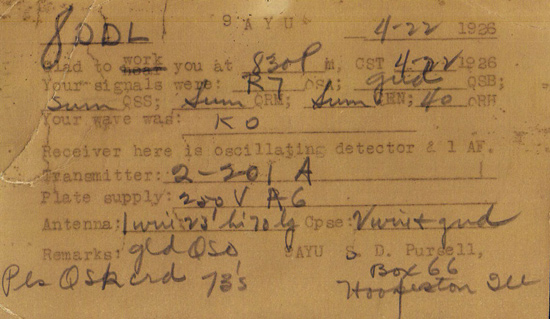 8ODL 9AYU 4-22 1926
Glad to work hear you at 830P M, CST 4-22 1926
Your signals were: R7 QSA; gud QSB;
Sum QSS; Sum QRM; Sum QRN; 40 QRH
Your wave was: KO
Receiver here is oscillating detector & 1 AF.
Transmitter: 2-201 A
Plate supply: 250 V
Antenna: 1 wire 23' hi 70 lg Cpse: 1 wire + gnd
Remarks: gld QSO, 9AYU S. D. Pursell,
Pls QSK crd 73's Box 66
Hoopeston Ill